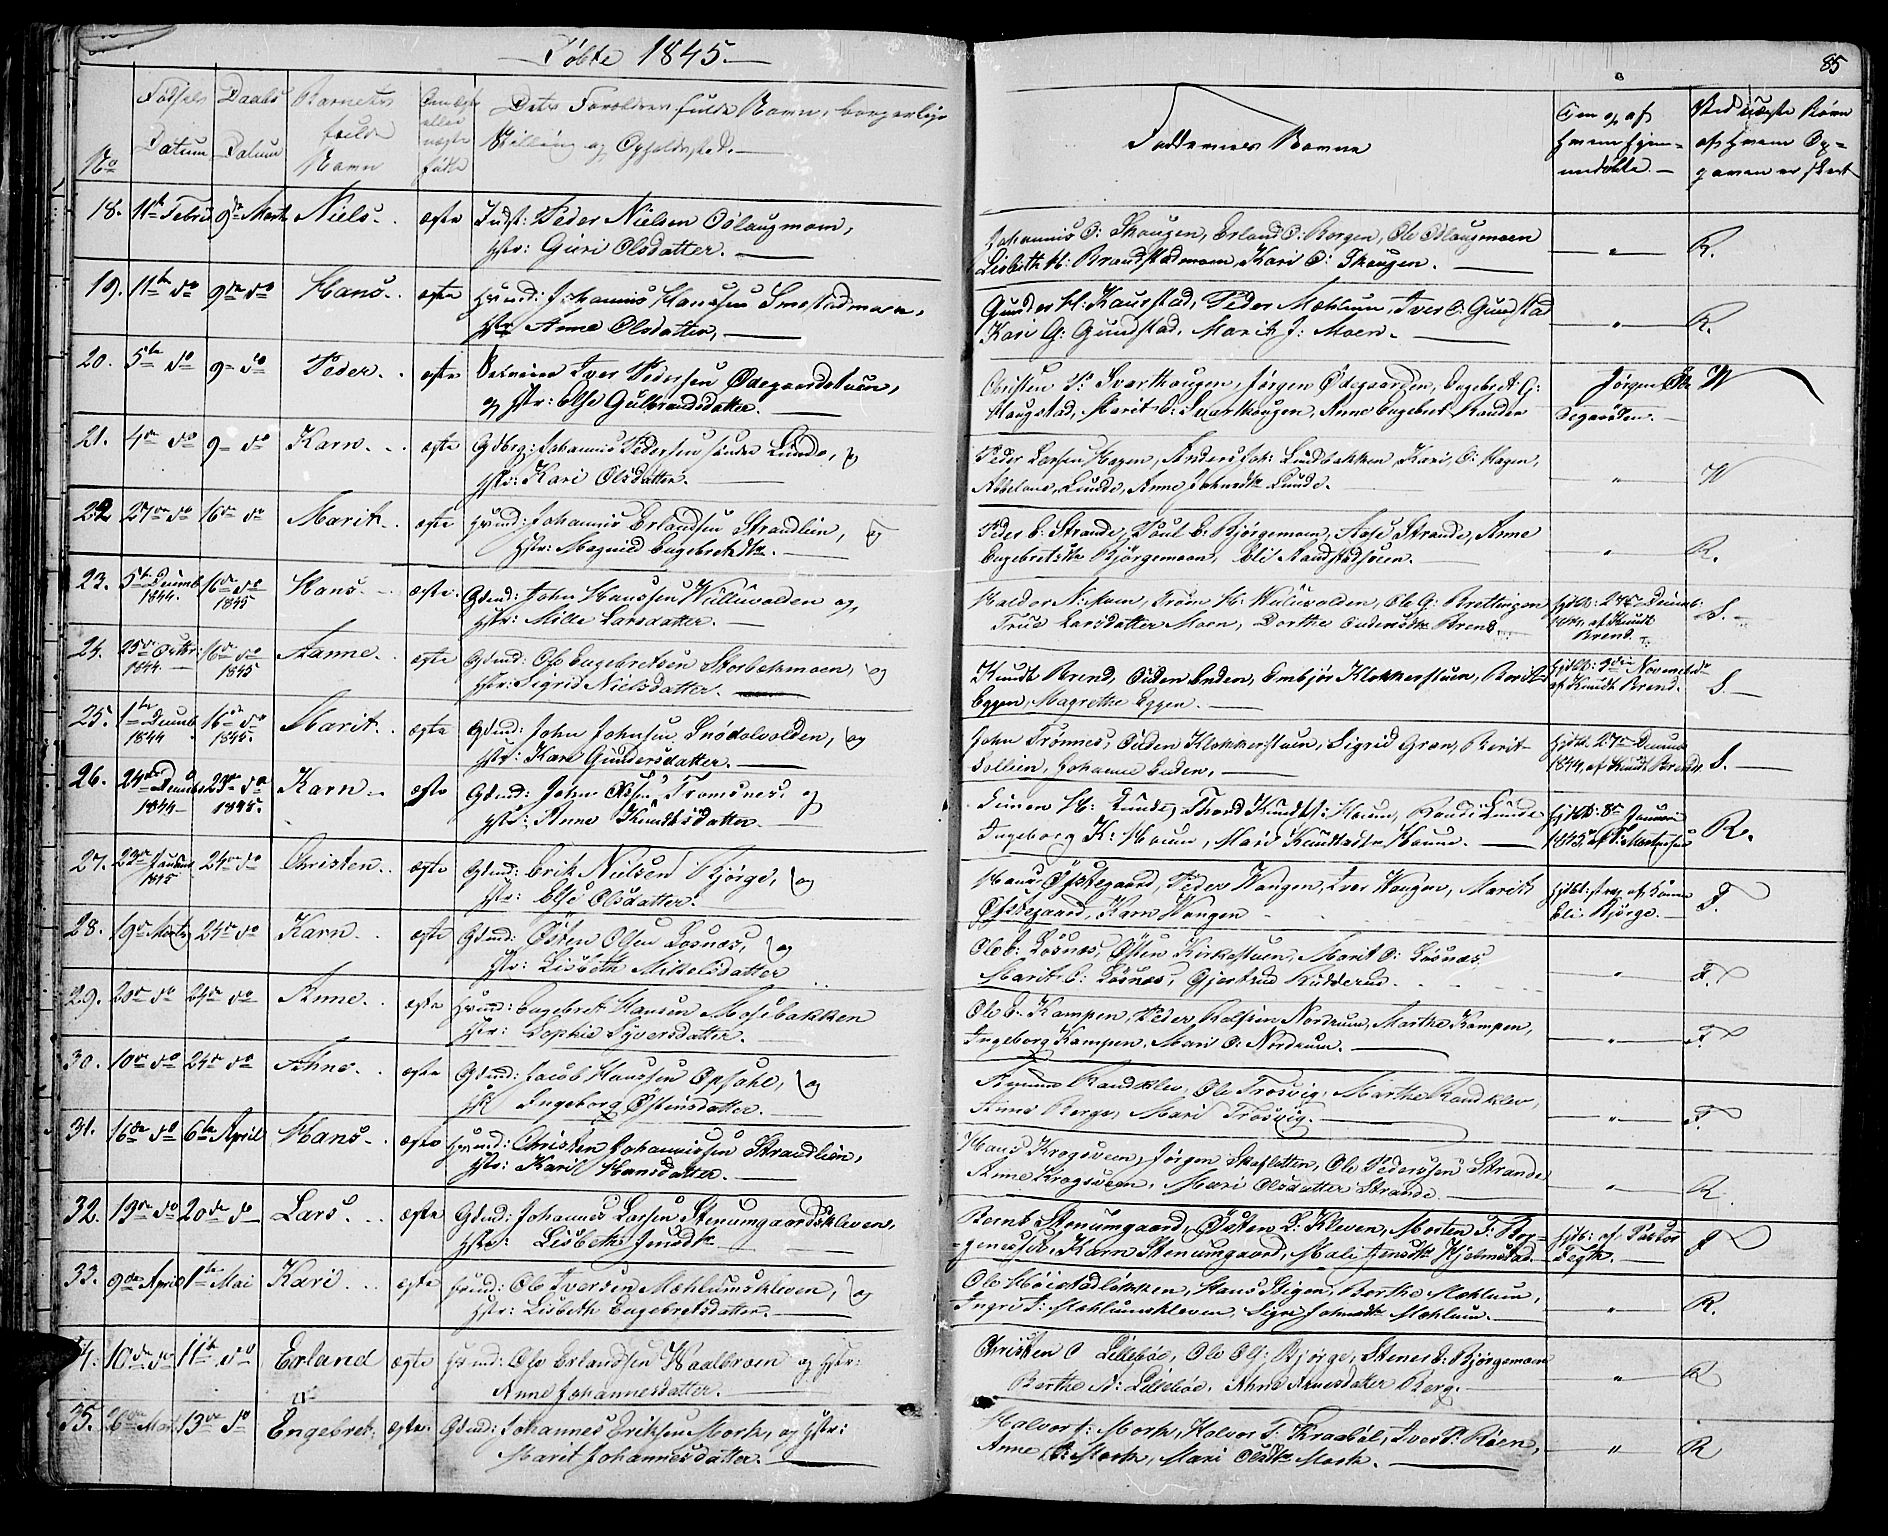 Døbte 1845.
85
No
Fødsels Datum
Daabs Datum
Barnets fulde Navn
ægte eller uægte født
Dets Forældres fulde Navn, borgerlige Stilling og Opholdssted.
Faddernes Navne
Om og af hvem hjemmedøbte.
Ved uægte Børn af hvem Opgaven er skeet
18. 11te Febr. 9de Marts Niels. ægte Indst: Peder Nielsen Oslaugmoen,
Hstr: Guri Olsdatter.
Johannis O: Skougen, Erland O: Borgen, Ole Oslaugmoen
Lisbeth H: Brandstadmoen, Kari O: Skougen. R.
19. 11te do 9de do Hans. ægte Hmd: Johannis Hanssen Smestadmoen,
Hstr Anne Olsdatter,
Gunder H: Kaurstad, Peder Mæhlum, Iver O: Gunstad
Kari G: Gunstad, Marit J: Moen. R.
20. 5te do 9 do Peder. ægte Iver Pedersen Ødegaardstuen,
og Hstr: Else Gulbrandsdatter.
Christen P: Svarthaugen, Jørgen Ødegaarden, Engebret G:
Haugstad, Marit O: Svarthaugen, Anne Engebret Randen
Jørgen Ødegaarden. W
21. 4de do 9 do Karn. ægte Gdbrg: Johannis Pedersen søndre Lunde, og
Hstr: Kari Olsdatter.
Peder Larsen Hagen, Anders Joh: Lundbakken, Kari O: Hagen,
Abbelone Lunde, Anne Johnsdtr Lunde. W
22 27de do 16de do Marit. ægte Hmd: Johannis Erlandsen Strandlien, og
Hstr: Magnild Engebretsdtr.
Peder E: Strande, Poul E: Bjørgemoen, Aase Strande, Anne
Engebretsdtr Bjørgemoen, Eli Sandstadstuen. R.
23. 5te Decmb. 1844. 16de do 1845 Hans. ægte. Gdmd: John Hanssen Willuvolden og,
Hstr: Mille Larsdatter.
Haldor N: Moen, Trøen H: Willuvolden, Ole G: Brettingen
True Larsdatter Moen, Dorthe Endersdtr Brend.
Hjdbt: 24de Decmb: 1844 af Knudt Brend. S.
24. 25de Octbr: 1844. 16de do 1845 Aanne. ægte Gdmd: Ole Engebretsen Storbekmoen, og
Hstr: Sigrid Nielsdatter.
Knudt Brend, Ouden Enden, Embjør Klokkerstuen, Berit
Eggen, Magrethe Eggen.
Hjdbt: 3die Novemb. af Knudt Brend. S.
25. 1te Decmb. 1844 16de do 1845. Marit. ægte Gdmd: John Johnsen Snødolvolden, og
Hstr: Kari Gundersdatter.
John Trønnes, Ouden Klokkerstuen, Sigrid Gron, Berit
Sollien, Johanne Enden,
Hjdbt. 27de Decmb 1844, af Knudt Brend. S.
26. 24de Decmb 1844 23de do 1845. Karn. ægte Gdmd: John Olsen Tromsnes, og
Hstr: Anne Knudtsdatter.
Simen H: Lunde, Thord Knudts: Houm, Randi Lunde
Ingeborg K: Houm, Mari Knudtsdtr Houm.
Hjdbt: 8de Januari 1845, af P: Mortensen R.
27. 22de Januar 1845 24de do Christen. ægte Gdmd: Erik Nielsen Bjørge, og
Hstr: Else Olsdatter.
Hans Øfstegaard, Peder Wangen, Iver Wangen, Marit
Øfstegaard, Karn Wangen
Hjdbt: strax af Konen Eli Bjørge. F.
28. 19de Marts 24de do Karn. ægte Gdmd: Østen Olsen Losnæs, og
Hstr: Lisbeth Mikkelsdatter
Ole E: Losnæs, Østen Kirkestuen, Marit O: Losnæs
Marit O: Losnæs, Gjertrud Rudderud. F.
29. 20de do 24de do Anne. ægte Hmd: Engebret Hansen Mosebakken
Hstr: Sophie Syversdatter.
Ole E. Kampen, Peder Rolfsen Nordrum, Marthe Kampen,
Ingeborg Kampen, Mari O: Nordrum. F.
30. 10de do 24de do Ahne. ægte Gdmd: Jacob Hanssen Opsahl, og
Hstr Ingeborg Østensdatter.
Randklev, Ole Trosvig, Marthe Randklev,
Anne Berge, Mari Trosvig. F.
31. 16de do 6te April Hans. ægte Hmd: Christen Johannissen Strandlien,
Hstr: Kari Hansdatter.
Hans Krogsveen, Jørgen Skafletten, Ole Pederssen Strande
Anne Krogsveen, Mari Olsdatter Strande. R.
32. 19de do 20de do Lars. ægte Gdmd: Johannes Larsen Stenumgaardskleven,
Hstr: Lisbeth Jensdtr
Bernt Stenumgaard, Øysten L: Kleven, Morten F: Jørgenstad, Karn Stenumgaard, Mali Jensdtr Hjelmstad.
Hjdbt: af Pastor Fegth. F
33. 9de April 1te Mai Kari. ægte Hmd: Ole Iversen Mæhlumskleven, og
Hstr: Lisbeth Engebretsdatter.
Ole Høistadløkken, Hans Stigen, Berthe Mæhlum,
Ingri I: Mæhlumskleven, Sigri Johnsdtr Mæhlum. R.
34. 10de do 11te do Erland ægte Hmd: Ole Erlandsen Waalbroen og Hstr:
Anne Johannesdatter.
Christen O Lillebøe, Ole O: Bjørge, Stener E: Bjørgemoen
Berthe A: Lillebøe, Ahne Arnesdatter Berg. R
35. 26de Mart 13de do Engebret. ægte. Gdmd: Johannes Eriksen Mork, og Hstr:
Marit Johannesdatter.
Halvor J: Mork, Halvor P. Skraabøl, Iver P: Røen,
Anne J: Mork, Mari Olsdtr Mork. R